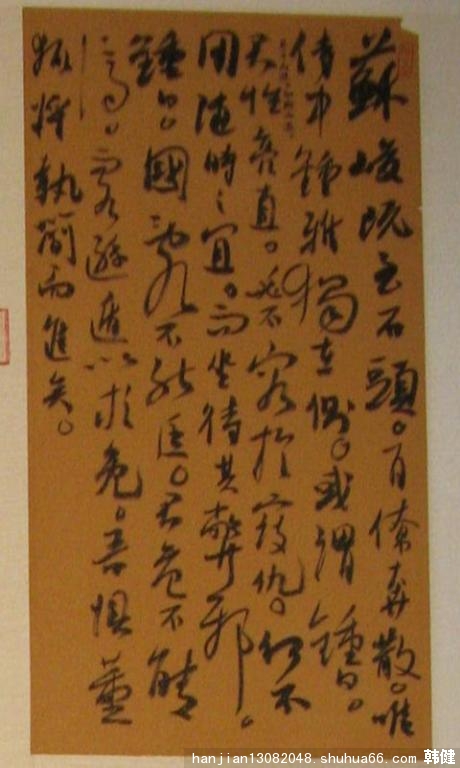 蘇峻既至石頭。百僚奔散。唯
侍中鍾雅獨在側。或謂鍾曰。
君性亮直。必不容於寇仇。何不
用随時之宜。而坐待其弊邪。
鍾曰。國亂不能匡。君危不能
濟。而各遜遁以求免。吾懼董
狐將執簡而進矣。
hanjian13082048.shuhua66.com 韩健